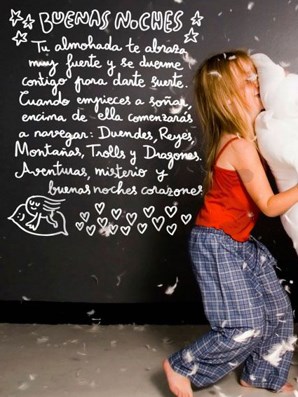 BUENAS NOCHES
Tu almohada te abraza
muy fuerte y se duerme
contigo para darte suerte.
Cuando empieces a soñar,
encima de ella comenzarás
a navegar: Duendes, Reyes,
Montañas, Trolls y Dragones.
Aventuras, misterio y
buenas noches corazones